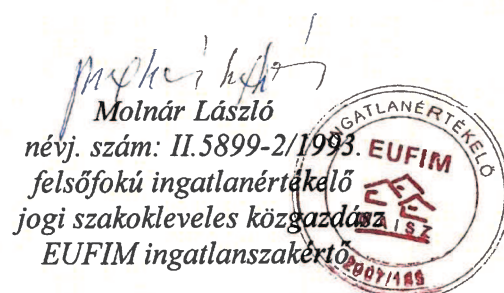 Molnár László
névj. szám: II.5899-2/1993.
felsőfokú ingatlanértékelő
jogi szakokleveles közgazdász
EUFIM ingatlanszakértő
INGATLANÉRTÉKELŐ
EUFIM
MAISZ
2007/185